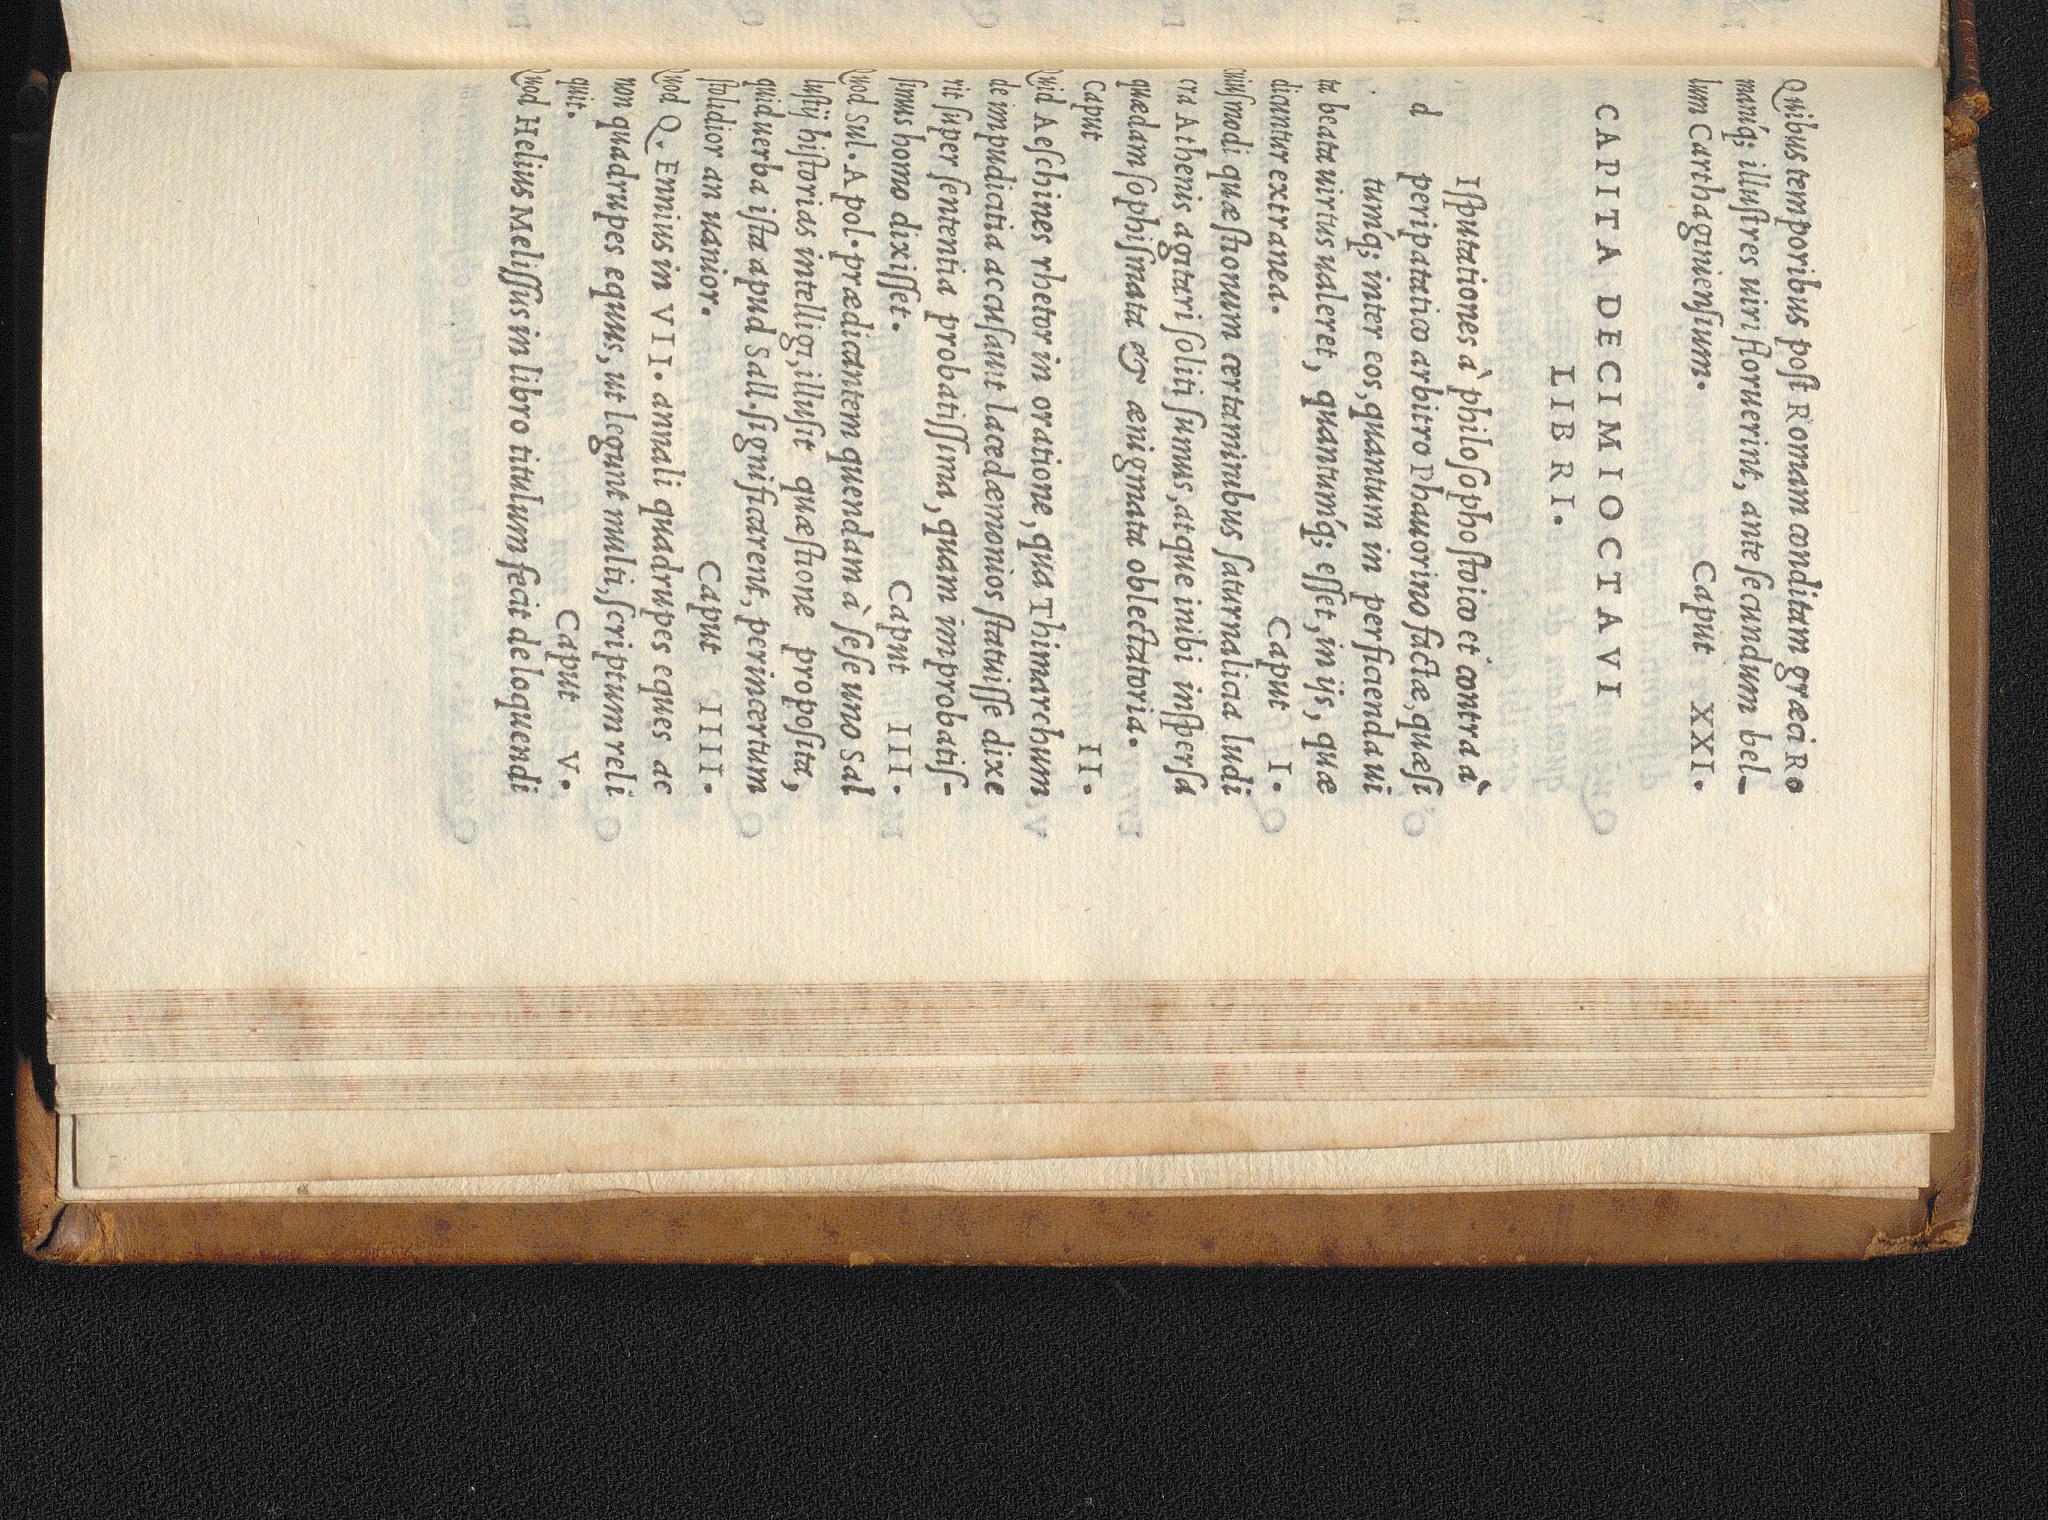 Quibus temporibus post Romam conditam græci Ro
manıq́; illustres uiri floruerint, ante secundum bel-
lum Carthaginiensium. Caput XXI.
CAPITA DECIMIOCTAVI
LIBRI.
d Isputationes à philosopho stoico et contra à
peripatatico arbitro Phauorino factæ, quæsi
tumq́; inter eos, quantum in perficienda ui
ta beata uirtus ualeret, quantumq́; esset, in ijs, quæ
dicuntur extranea. Caput I.
Cuiusmodi quæstionum certaminibus saturnalicia ludi
cra Athenis agitari soliti sumus, atque inibi inspersa
quædam sophismata & ænigmata oblectatoria.
Caput II.
Quid Aeschines rhetor in oratione, qua Thimarchum
de impudicitia accusauit lacedæmonios statuisse dixe
rit super sententia probatissima, quam improbatis-
simus homo dixisset. Caput III.
Quod Sul. Apol. prædicantem quendam à sese uno Sal
lustij historias intelligi, illusit quæstione proposita,
quid uerba ista apud Sall. significarent, perincertum
stolidior an uanior. Caput IIII.
Quod Q. Ennius in VII. annali quadrupes eques ac
non quadrupes equus, ut legunt multi, scriptum reli
quit. Caput V.
Quod Helius Melissus in libro titulum fecit de loquendi